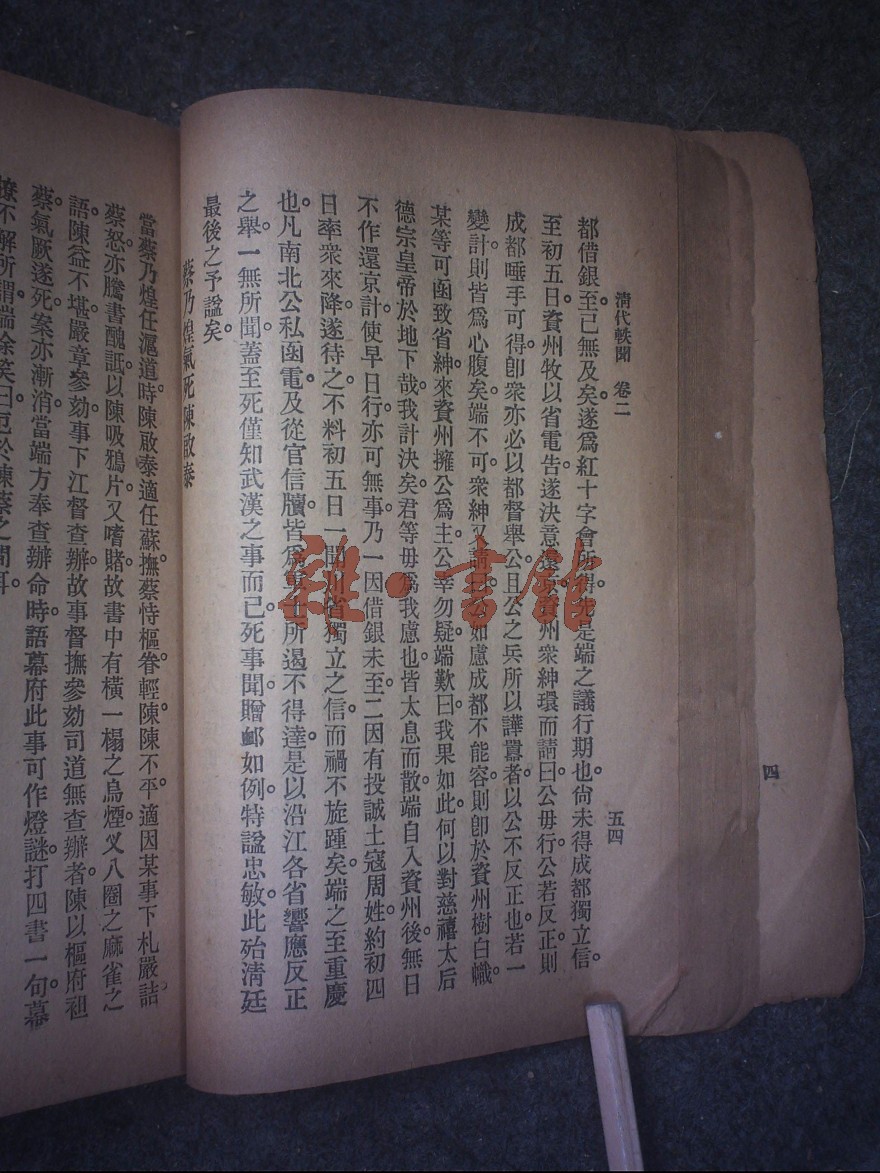 清代軼聞　卷二
五四
都借銀至已無及矣。遂爲紅十字會所得。先是端之議行期也。尙未得成都獨立信。
至初五日。資州牧以省電告。遂決意還京。資州衆紳環而請曰。公毋行。公若反正。則
成都唾手可得。卽衆亦必以都督舉公。且公之兵所以譁囂者。以公不反正也。若一
變計。則皆爲心腹矣。端不可。衆紳又請曰。公如慮成都不能容。則卽於資州樹白幟。
某等可函致省紳。來資州擁公爲主。公幸勿疑。端歎曰。我果如此。何以對慈禧太后
德宗皇帝於地下哉。我計決矣。君等毋爲我慮也。皆太息而散。端自入資州後。無日
不作還京計。使早日行。亦可無事。乃一因借銀未至。二因有投誠土寇周姓。約初四
日率衆來降。遂待之。不料初五日一聞川省獨立之信。而禍不旋踵矣。端之至重慶
也。凡南北公私函電。及從官信牘。皆爲軍士所遏。不得達。是以沿江各省響應反正
之舉。一無所聞。蓋至死僅知武漢之事而已。死事聞。贈卹如例。特諡忠敏。此殆淸廷
最後之予諡矣。
蔡乃煌氣死陳啟泰
當蔡乃煌任滬道時。陳啟泰適任蘇撫。蔡恃樞眷輕陳。陳不平。適因某事下札嚴詰
蔡。蔡怒。亦騰書醜詆。以陳吸鴉片。又嗜賭。故書中有橫一榻之烏煙。叉八圈之麻雀之
語。陳益不堪。嚴章參劾。事下江督查辦。故事督撫參劾司道。無查辦者。陳以樞府袒
蔡。氣厥遂死。案亦漸消。當端方奉查辦命時。語幕府。此事可作燈謎。打四書一句。幕
僚不解所謂。端徐笑曰。厄於陳蔡之間耳。
四
雜·書館